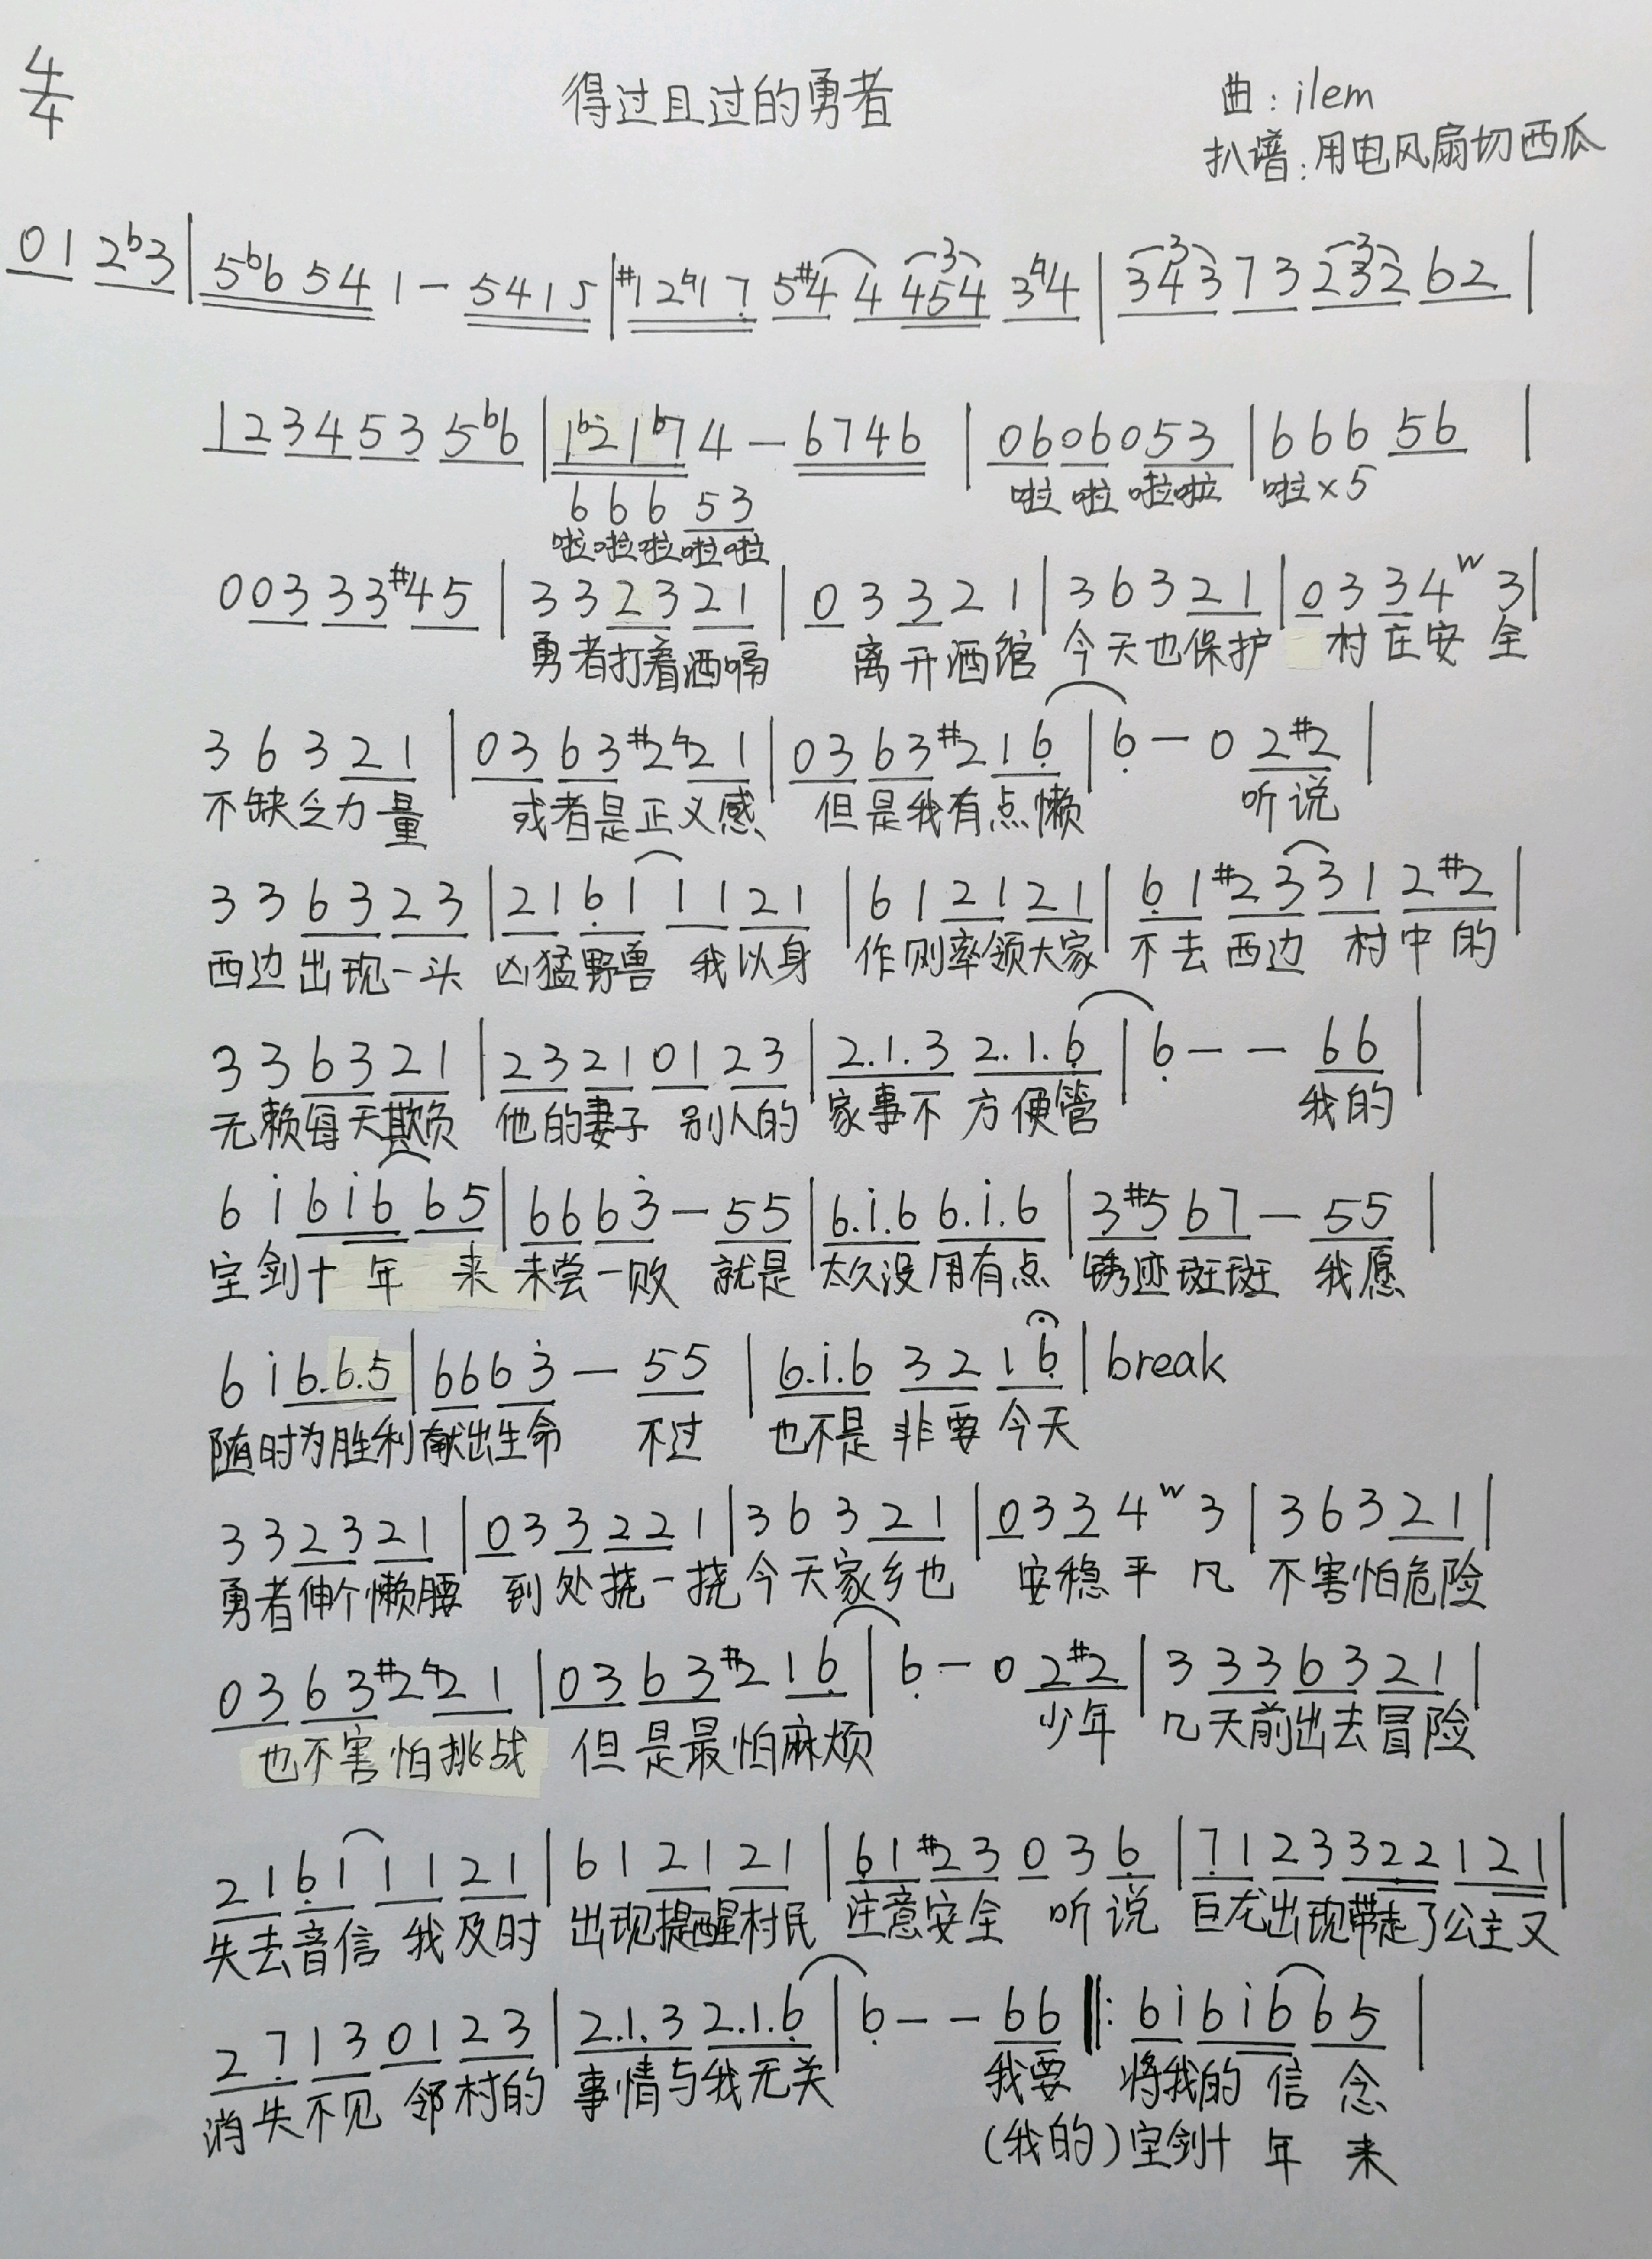 4/4
得过且过的勇者
曲:ilem
扒谱:用电风扇切西瓜
01 2b3|5b6 54 1 - 5415|#12♮17 5#4 4 454 3♮4|343 73 232 62|
12 34 53 5b6|1b21b7 4 - 6746|06 06 0 53|6 6 6 56|
6 6 6 53 啦 啦 啦啦 啦×5
啦啦啦啦啦
0 03 33 #45|3 3 23 21|0 3 3 2 1|3 6 3 21|0 3 3 4 w 3|
勇者打着酒嗝 离开酒馆 今天也保护 村庄安全
3 6 3 21|03 63 #2♮21|03 63 #2 16|6 - 0 2#2|
不缺乏力量 或者是正义感 但是我有点懒 听说
3 3 63 23|21 61 11 21|6 1 21 21|61 #23 31 2#2|
西边出现一头 凶猛野兽 我以身 作则率领大家 不去西边 村中的
3 3 63 21|23 21 01 23|2.1.3 2.1.6|6 - - 66|
无赖每天欺负 他的妻子 别人的 家事不方便管 我的
6 i 6i6 65|66 63 - 55|6.i.6 6.i.6|3#5 67 - 55|
宝剑十年 来 未尝一败 就是 太久没用有点 锈迹斑斑 我愿
6 i 6.6.5|66 63 - 55|6.i.6 32 16|break
随时为胜利献出生命 不过 也不是非要今天
3 3 23 21|0 3 3 22 1|3 6 3 21|0 3 3 4 w 3|3 6 3 21|
勇者伸个懒腰 到处挠一挠 今天家乡也 安稳平凡 不害怕危险
03 63 #2♮21|03 63 #2 16|6 - 0 2#2|3 33 63 21|
也不害怕挑战 但是最怕麻烦 少年 几天前出去冒险
21 61 11 21|6 1 21 21|61 #23 0 3 6|71 23 322 121|
失去音信 我及时 出现提醒村民 注意安全 听说 巨龙出现带走了公主又
27 13 01 23|2.1.3 2.1.6|6 - - 66‖: 6i 6i6 65|
消失不见 邻村的 事情与我无关 我要 将我的 信 念
(我的)宝剑十 年 来